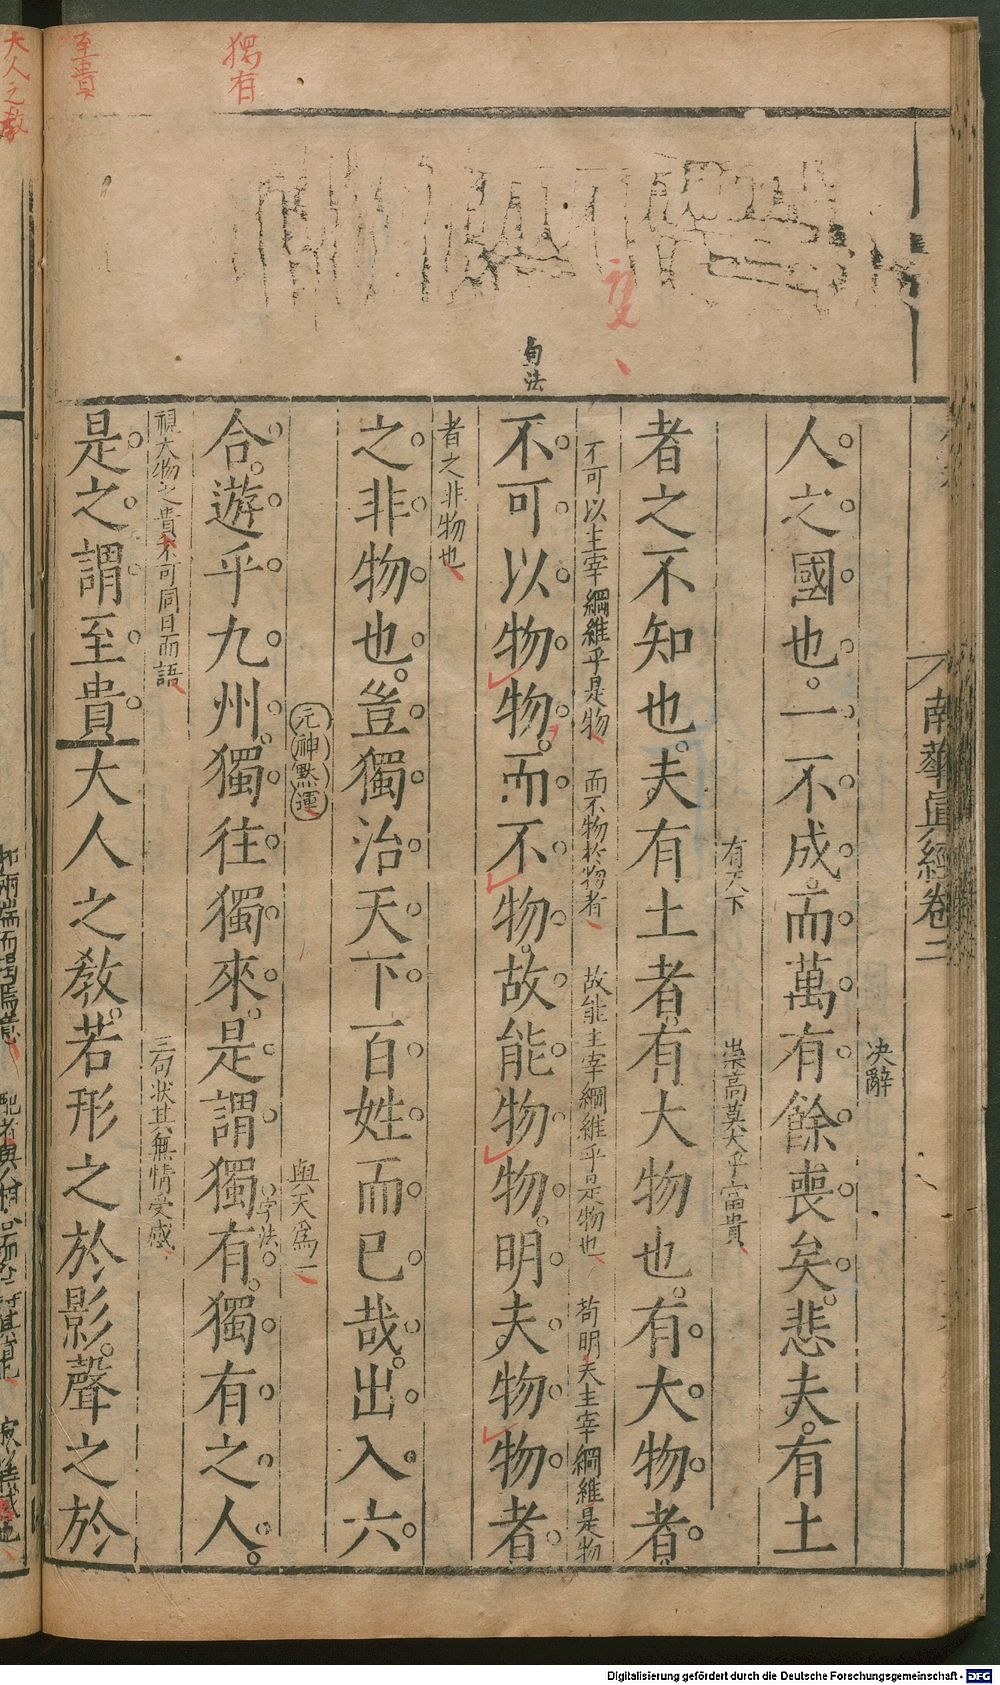 南華眞經卷二
人之國也一不成而萬有餘喪矣悲夫有土
决辭
者之不知也夫有土者有大物也有大物者
有天下
崇高莫大乎富貴
不可以物物而不物故能物物明夫物物者
不可以主宰綱維乎是物
而不物於物者
故能主宰綱維乎是物也
苟明夫主宰綱維是物
句法
之非物也豈獨治天下百姓而已哉出入六
者之非物也
合遊乎九州獨往獨來是謂獨有獨有之人
元神默運
與天爲一
字法
獨有
是之謂至貴大人之教若形之於影聲之於
視大物之貴不可同日而語
三句狀其無情受感
至貴
大人之教
Digitalisierung gefördert durch die Deutsche Forschungsgemeinschaft - DFG